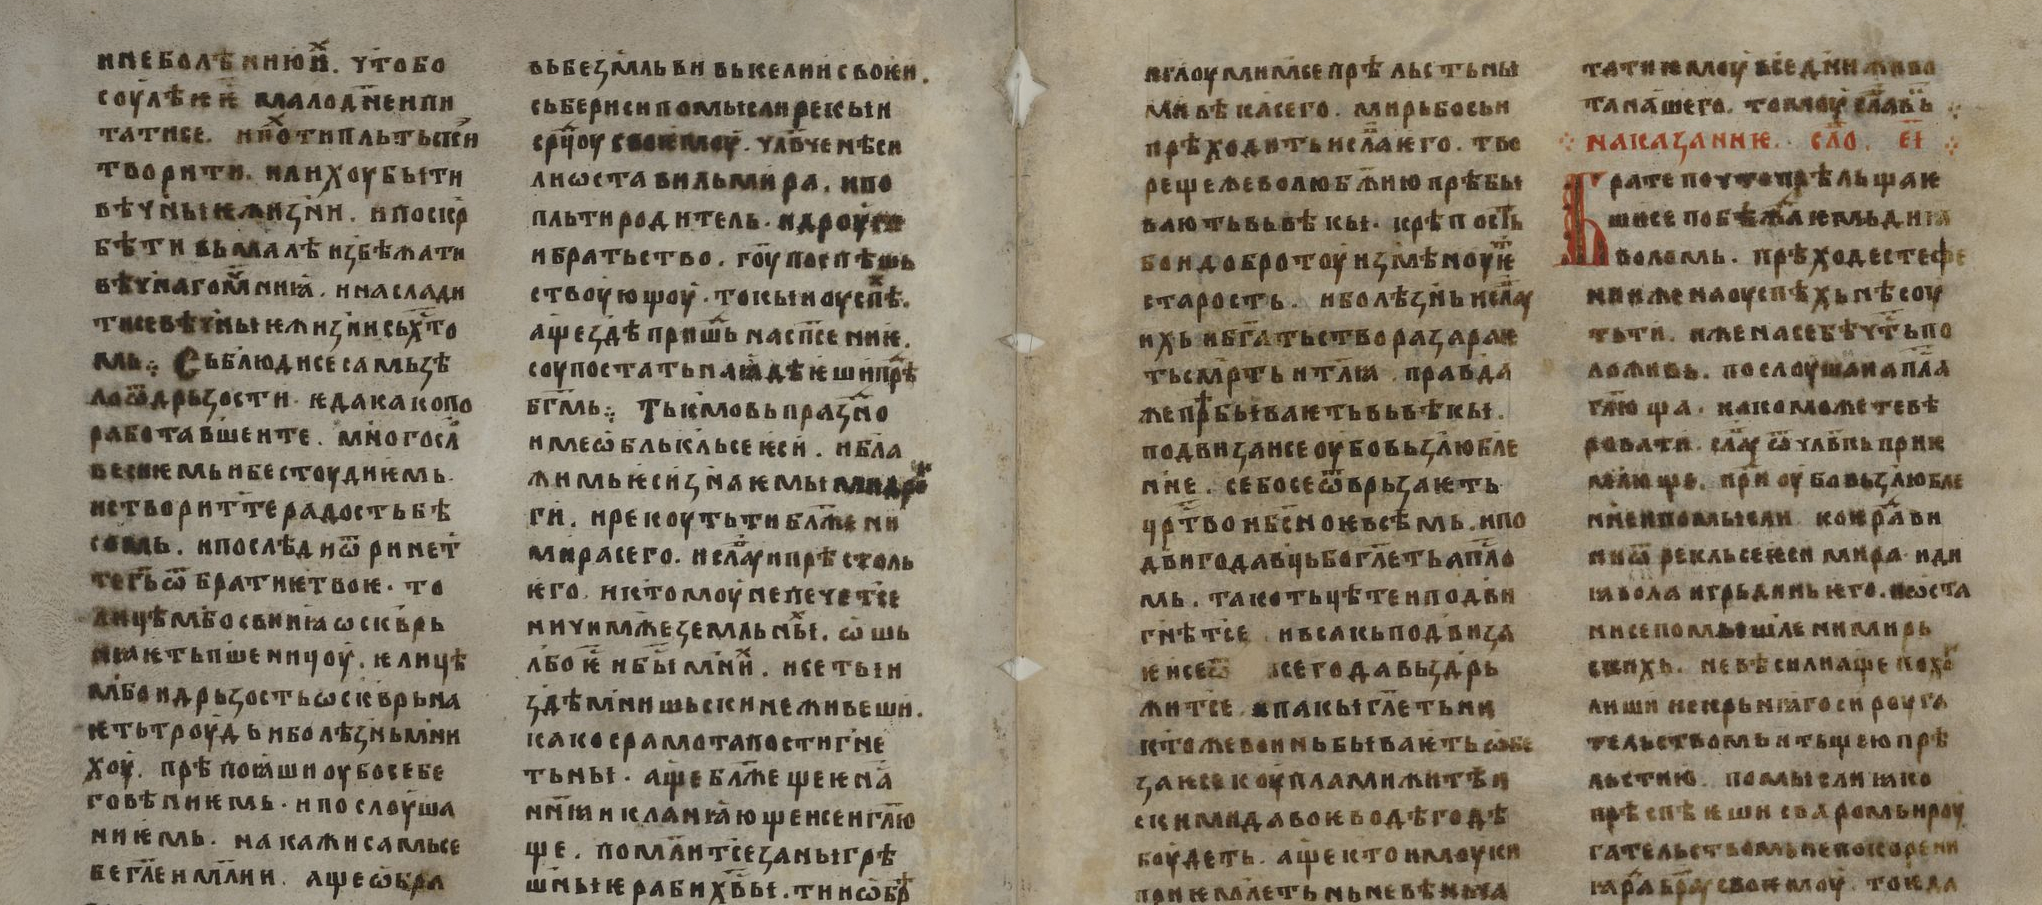 ини болѣнию и҃х. ꙋто бо
соуⷧ҇ѣ ѥ и҃ мало дн҃еи пи
татисе. ни҃хо ти пльтьски
творити. или хоу быти
вѣꙋныѥ жизни. и поскр
бѣти вь малѣ избѣжати
вѣꙋнаго мⷱ҇ниꙗ. и наслади
тисе вѣꙋныѥ жизни сь хⷭ҇то
мь ⁘ Сьблюди се самь зѣ
ло ѿ дрьзости. ѥда како по
работавше и те. многосл
весиѥмь и бестоудиѥмь.
и створит те радость бѣ
сомь. и послѣди ѿринет
те гь ѿ братиѥ твоѥ. то
лицѣм бо свиниꙗ ѡсквр
нꙗѥть пшеницоу. ѥлицѣ
м бо и дрьзость ѡсквр҄на
ѥть троудь и болѣзнь мни
хоу. прѣпоꙗши оубо себе
говѣниѥмь. и послоуша
ниѥмь. накажи самь се
бе гл҃е и мл҃ии. аще ѡбра
вь беꙁмльви вь келии своѥи.
сьбери си помысли рекыи
срⷣцоу своѥмоу. ꙋлвⷱ҇е нѣси
ли ѡставиль мира. и по
пльти родитель. и дроугы
и братьство. гоу поспѣшь
ствоующоу. то кыи оуспѣхⷯ.
аще здѣ пришⷧ҇ь на спⷭ҇ениѥ.
соупостать на ꙗдѣѥши прѣ
бг҃мь ⁘ Тьѥмо вь праꙁно
име ѡбльклься ѥси. и бла
жимь ѥси знаѥмыми др
ги. и рекоуть ти блⷤ҇ени
мира сего. и слⷡ҇оу и прѣстоль
ѥго. и к томоу не печетсе
ниꙋимже земльныⷯ. ѡ шь
лбо ѥ и бы мниⷯ. и се ты и
здѣ мнишьски не живеши.
како срамота постигне
ть ны. аще блже ще ѥ на
нниꙗ и кланꙗюще исе и глю
ще. помлитсе за ны грѣ
шныѥ раби хⷭ҇вы. ти и ѡбр
и глоумимсе прѣльстьны
ми вѣка сего. мирь бо сьи
прѣходить и слⷡ҇а ѥго. тво
реще же волю бж҃ию прѣбы
вають вь вѣкы. крѣпость
бо и доброту измѣноуѥⷮ
старость. и болѣзнь и слⷡ҇оу
ихь и бг҃атьство разараѥ
ть смр҃ть и тлꙗ. правда
же прⷣбываѥть вь вѣкы.
подвизаи се оубо вьзлюбле
ние. се бо се ѿврьзаѥть
цр҃тво нбⷭ҇ноѥ всѣмь. и по
двигодавць бо гл҃еть апло
мь. тако тьцѣте и подви
гнѣтсе и всакь подвиза
ѥисе ѿ всего да вьздрь
житсе. и пакы гл҃еть ни
ктоже воинь бываѥть ѡбе
заѥсе коуплами житѣи
скими да воѥводѣ годѣ
боудеть. аще кто имоуки
приѥмлеть нь невѣньча
тати ѥмоу все дни живо
та нашего. томоу славⷡ҇ь ⁘
⁘ Наказаниѥ. слⷪ҇. е҃і ⁘
Брате поꙋто прѣльщаѥ
шисе побѣжⷣаѥмь диꙗ
воломь. прѣходе стефе
нии же на оуспѣхь нѣ соу
тьти. иже на себѣ ꙋⷭ҇ть по
ложивь. послоушаи апⷭ҇ла
гл҃юща. како можете вѣ
ровати. слⷡ҇оу ѿ ꙋлвⷦ҇ь приѥ
млюще. при оубо вьзлюбле
нние и помысли. коѥ ради
ни ѿрекльсе ѥси мира. и ди
ꙗвола и грьдинь ѥго. и ѡста
ни се помышлени мирь
скихь. не вѣси ли аще поход
лиши некрьниꙗго си роуга
тельствомь и тьщею прѣ
льстию. помысли ꙗко
прѣспѣѥши сваромь и роу
гательствомь непокорени
ꙗ раⷣ брⷶ҇ту своѥмоу. тогда